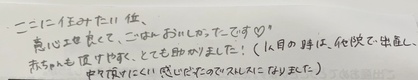 ここに住みたい位、
居心地良くて、ごはんおいしかったです♡
赤ちゃんも預けやすく、とても助かりました！(1人目の時は、他院で出産し、
中々預けにくい感じだったのでストレスになりました)